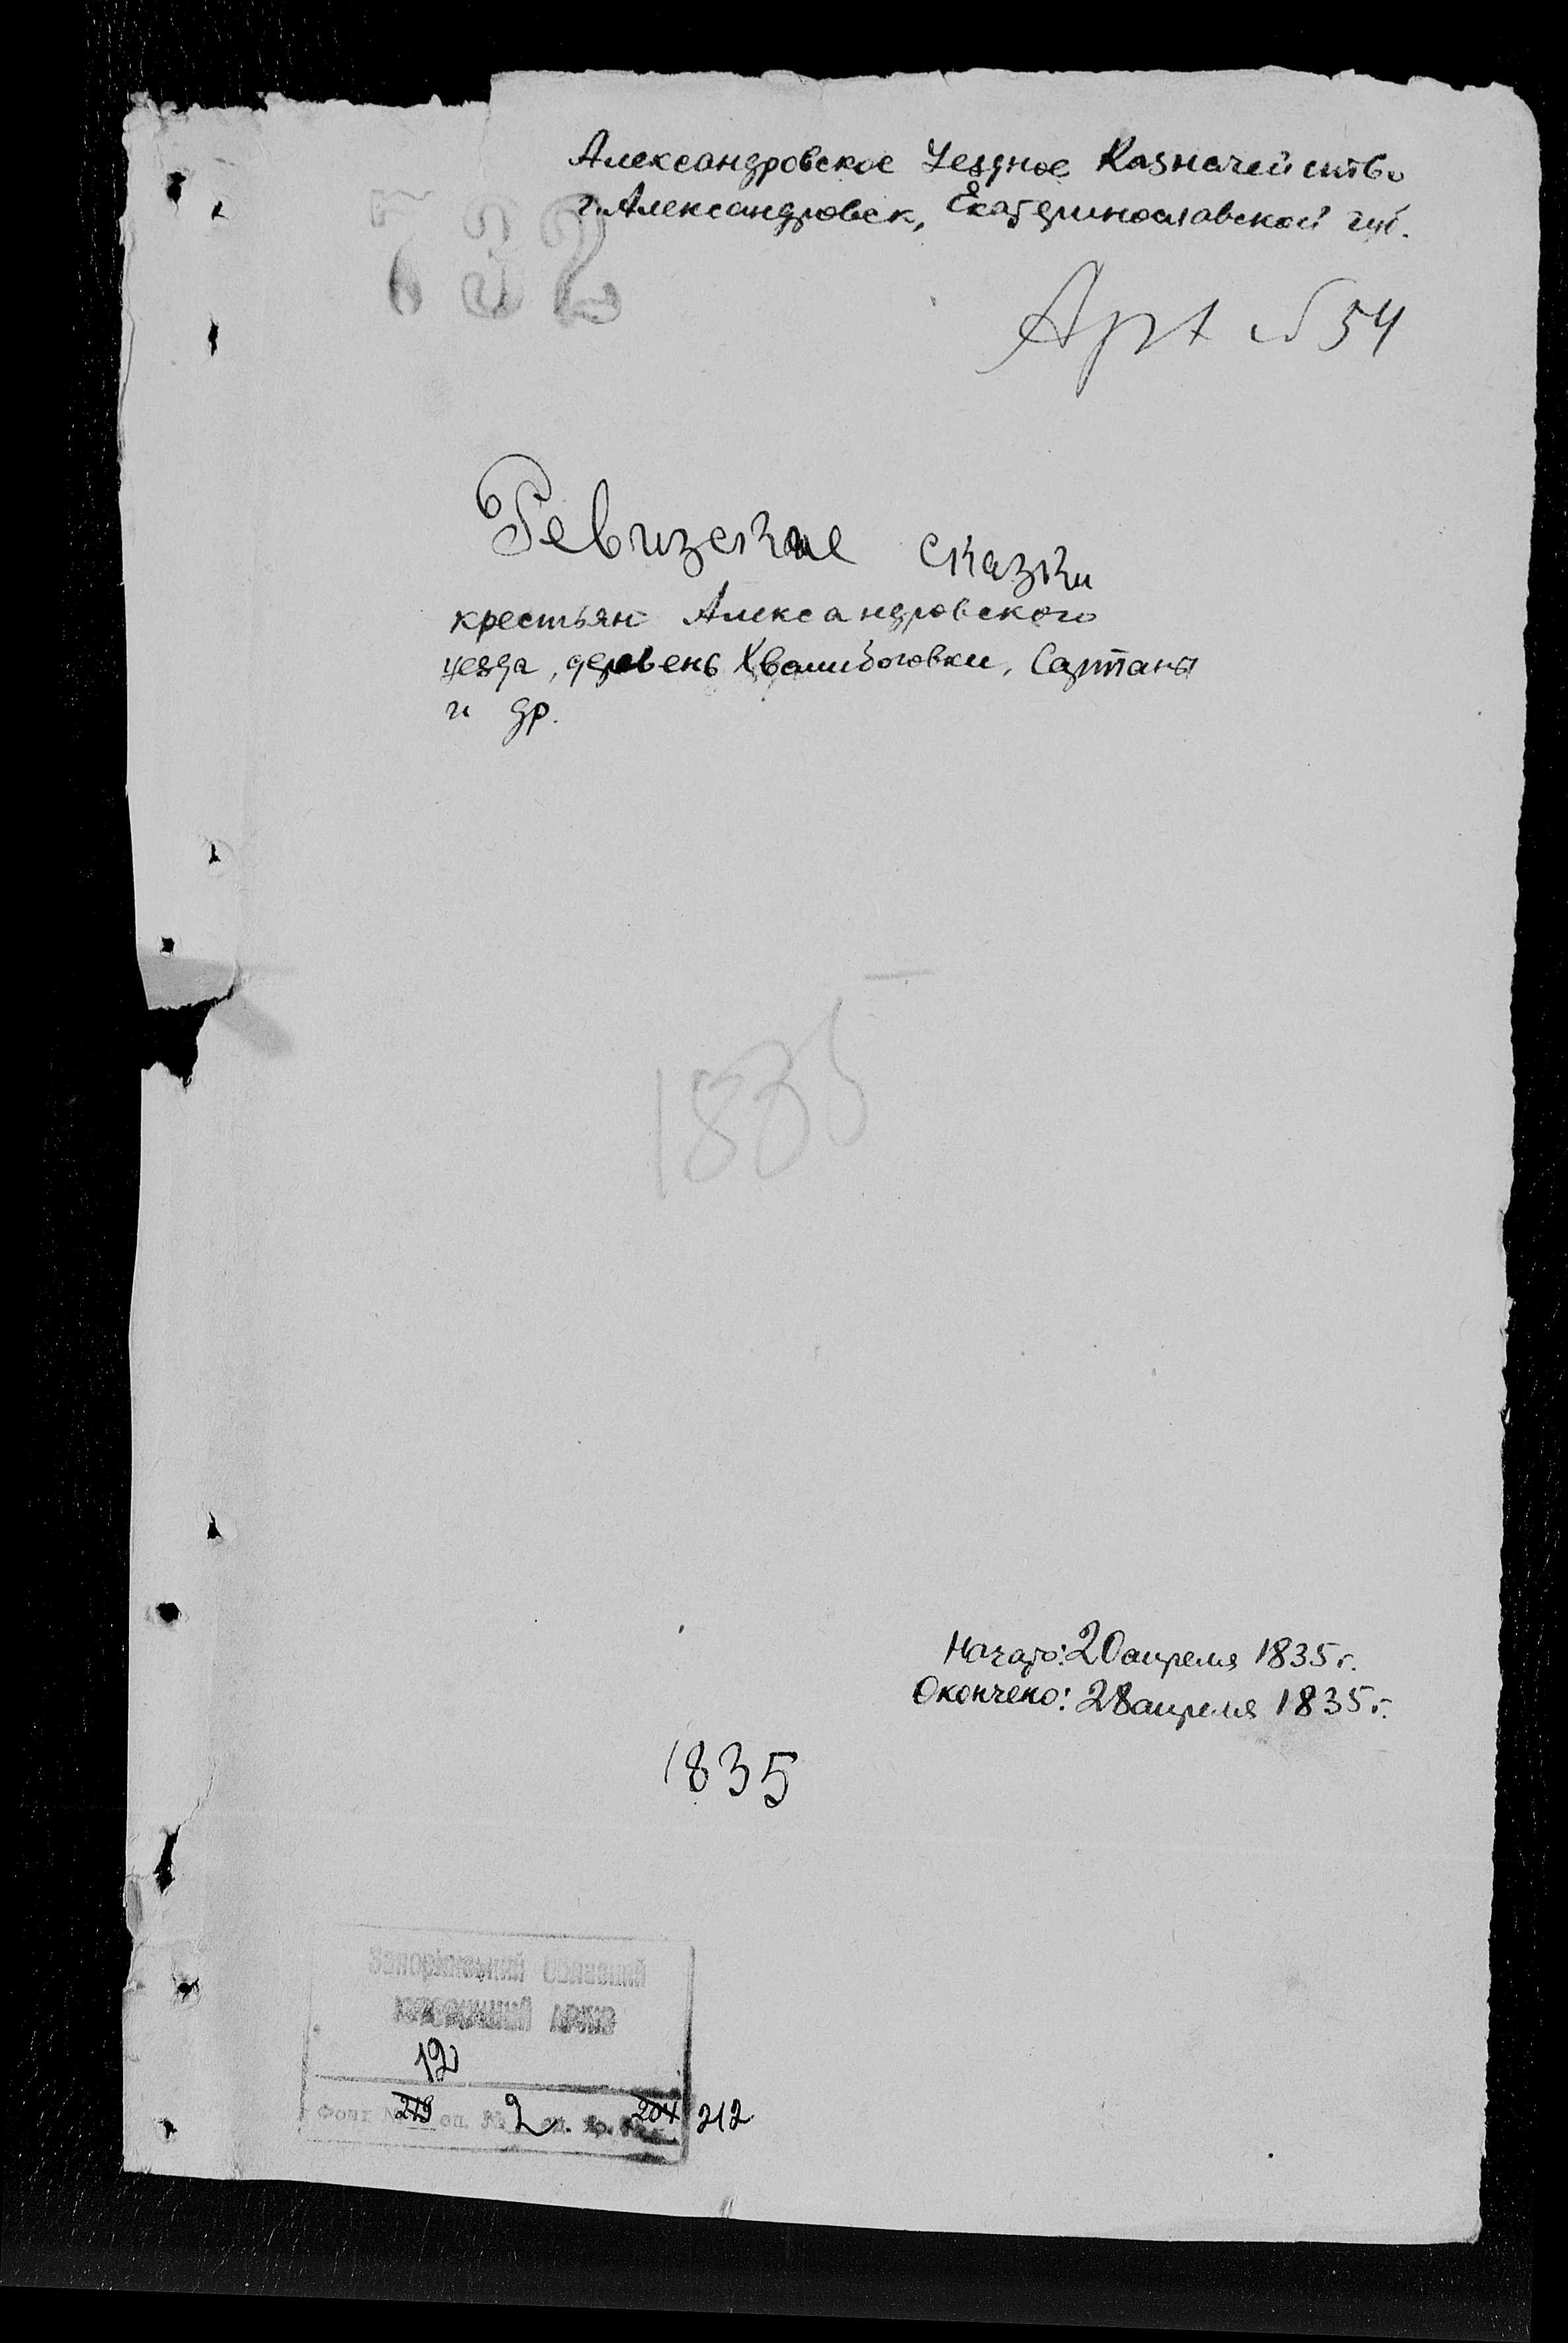 Александровское Уездное Казначейство
г. Александровск, Екатеринославской губ.
Арх № 54
Ревизские сказки
крестьян Александровского
уезда, деревень Хвалибоговки, Сартаны
и др.
1835
Начато: 20 апреля 1835 г.
Окончено: 28 апреля 1835 г.
1835
12
Фонд № 279 оп. № 2 од. зб. № 204 212